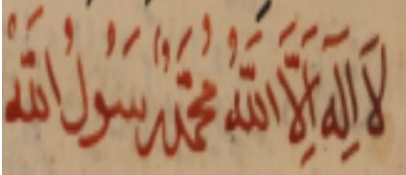 لَا اِلَهَ اِلَّا اللّٰهُ مُحَمَّدٌ رَسُولُ اللّٰهِ